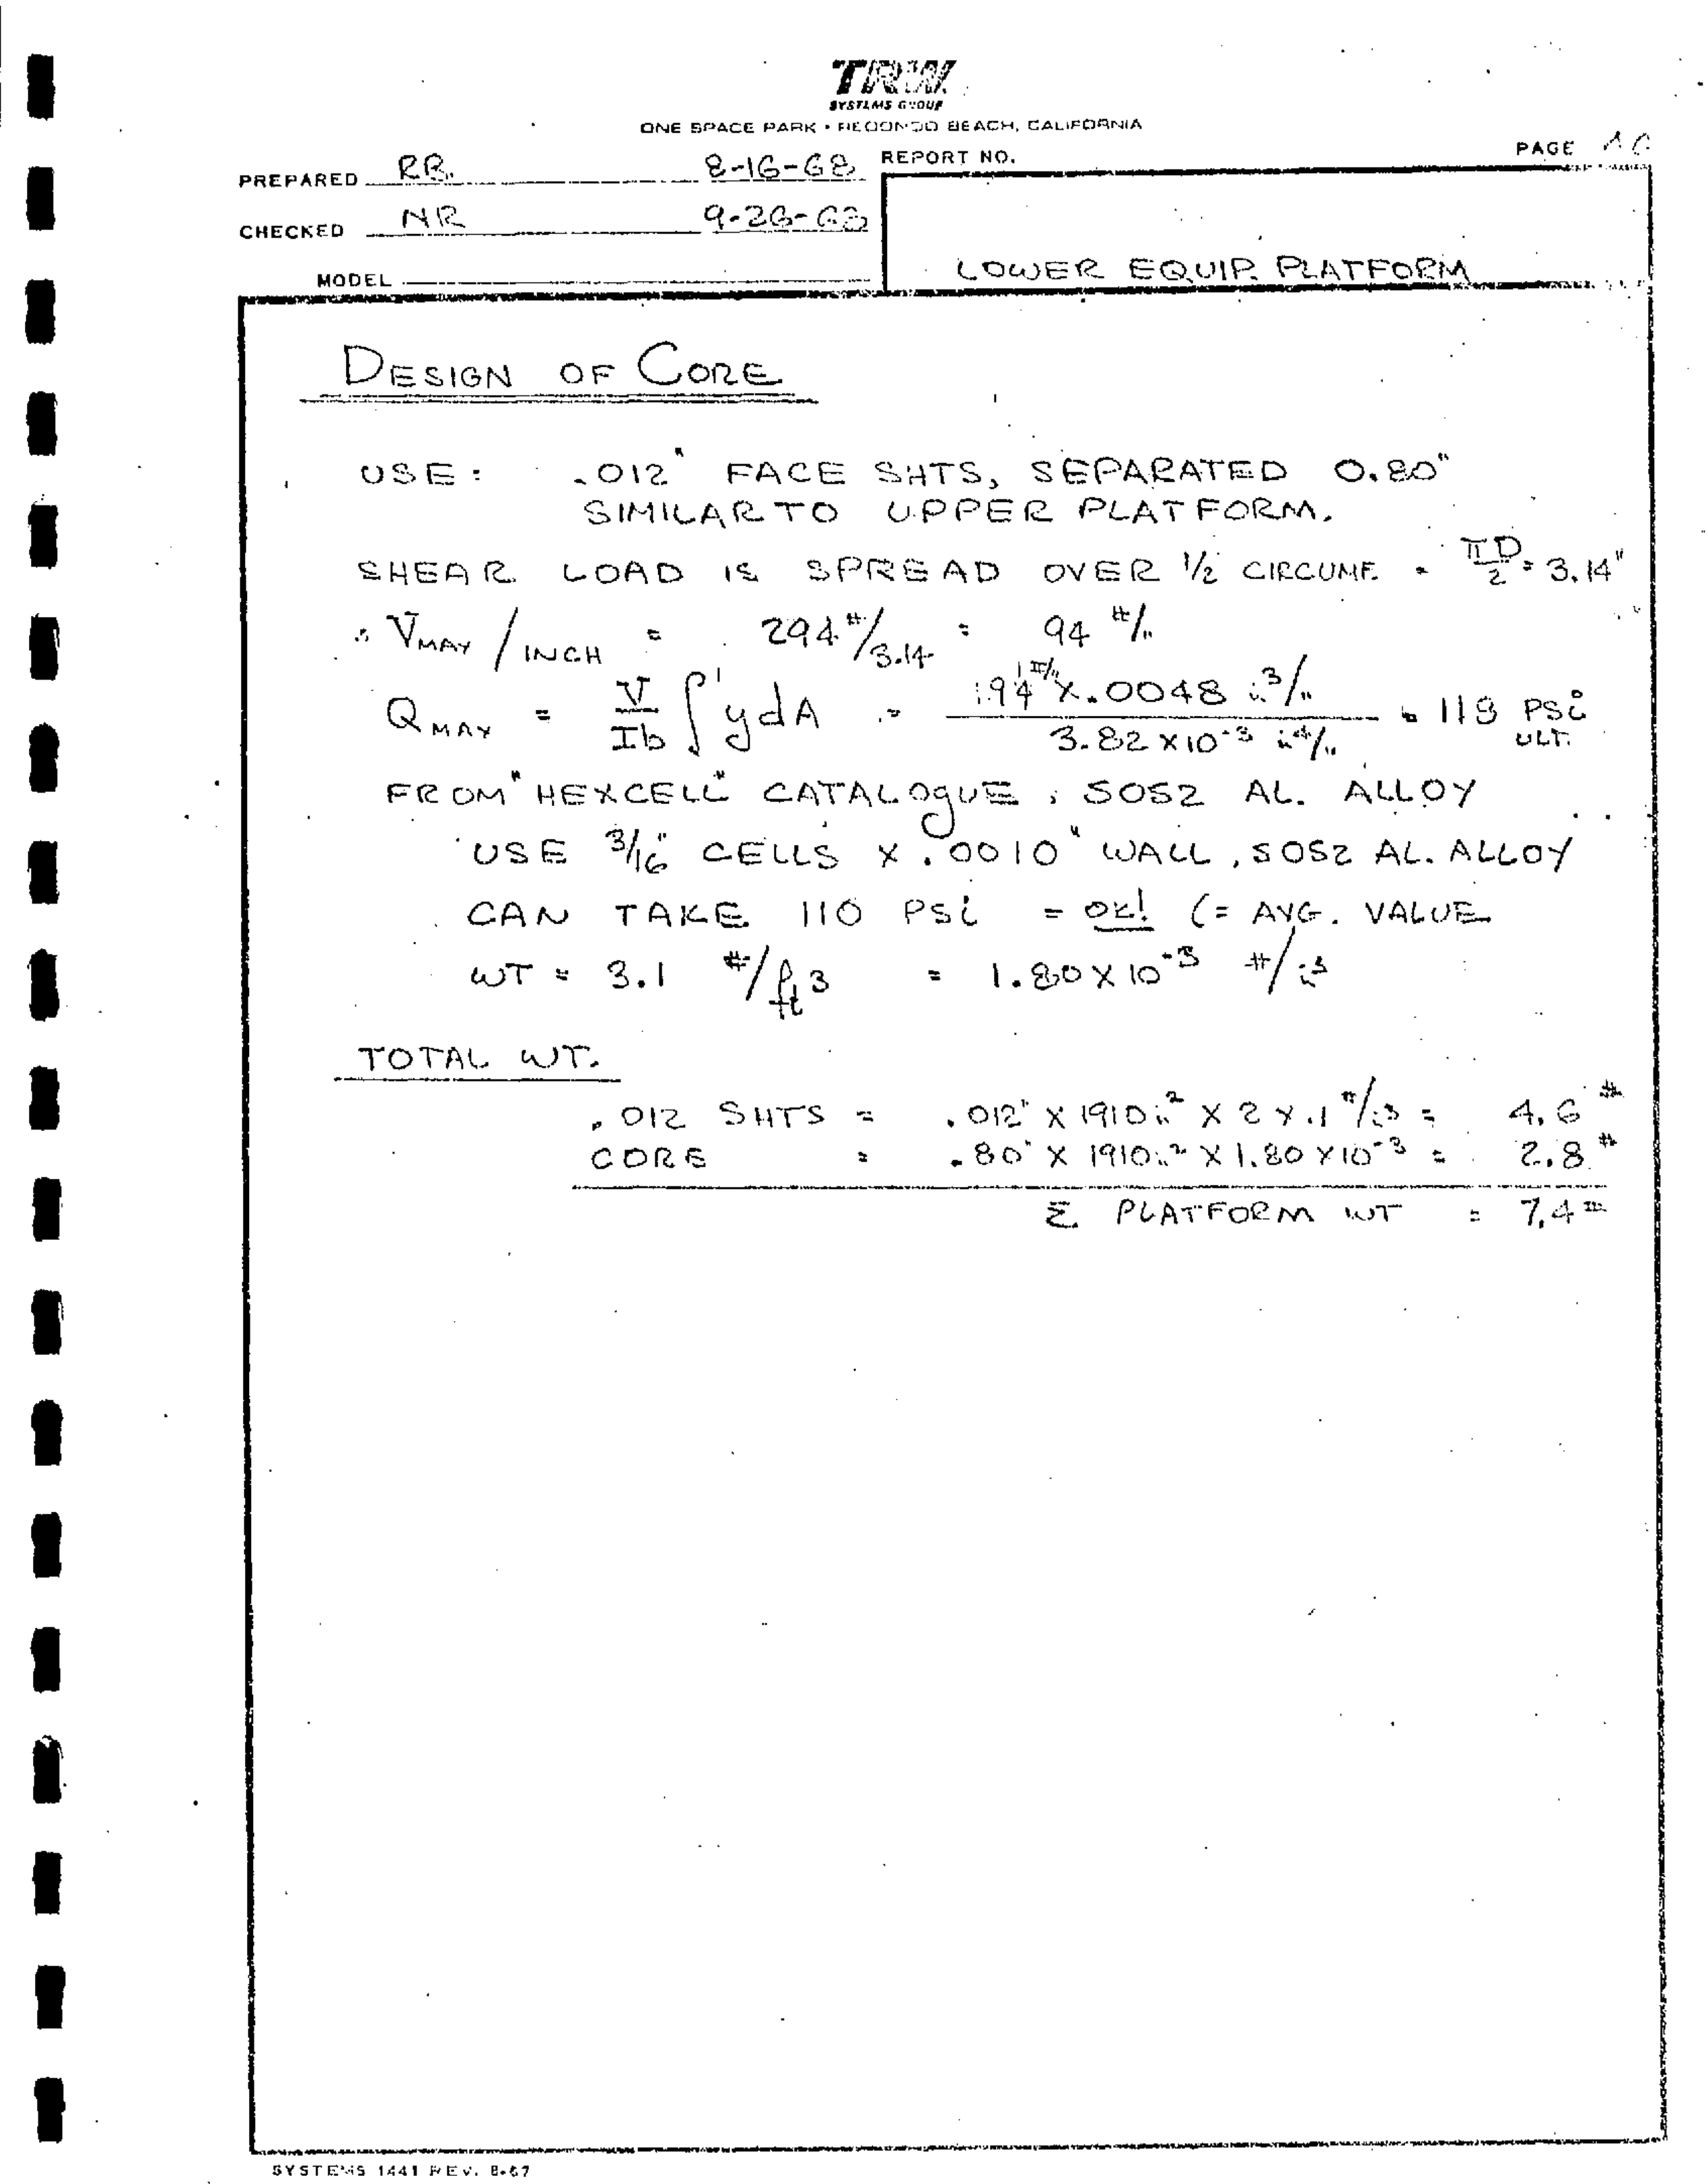 TRW
SYSTEMS GROUP
ONE SPACE PARK • REDONDO BEACH, CALIFORNIA
PREPARED RB. 8-16-68 REPORT NO. PAGE
CHECKED NR 9-26-68
MODEL LOWER EQUIP. PLATFORM
DESIGN OF CORE
USE: .012" FACE SHTS, SEPARATED 0.80"
SIMILAR TO UPPER PLATFORM.
SHEAR LOAD IS SPREAD OVER 1/2 CIRCUMF. = πD/2 = 3.14"
∴ VMAX / INCH = 294#/3.14 = 94 #/"
QMAX = V/Ib ∫ y dA = 94 #/" x .0048 in3/" / 3.82 x 10-3 in4/" = 118 PSi ULT.
FROM "HEXCELL" CATALOGUE, 5052 AL. ALLOY
USE 3/16" CELLS x .0010" WALL, 5052 AL. ALLOY
CAN TAKE 110 PSi = OK! (= AVG. VALUE
WT = 3.1 #/ft3 = 1.80 X 10-3 #/in3
TOTAL WT.
.012 SHTS = .012" X 1910in2 X 2 X .1 #/in3 = 4.6 #
CORE = .80" X 1910in2 X 1.80 X 10-3 = 2.8 #
Σ PLATFORM WT = 7.4 #
SYSTEMS 1441 REV. 8-67